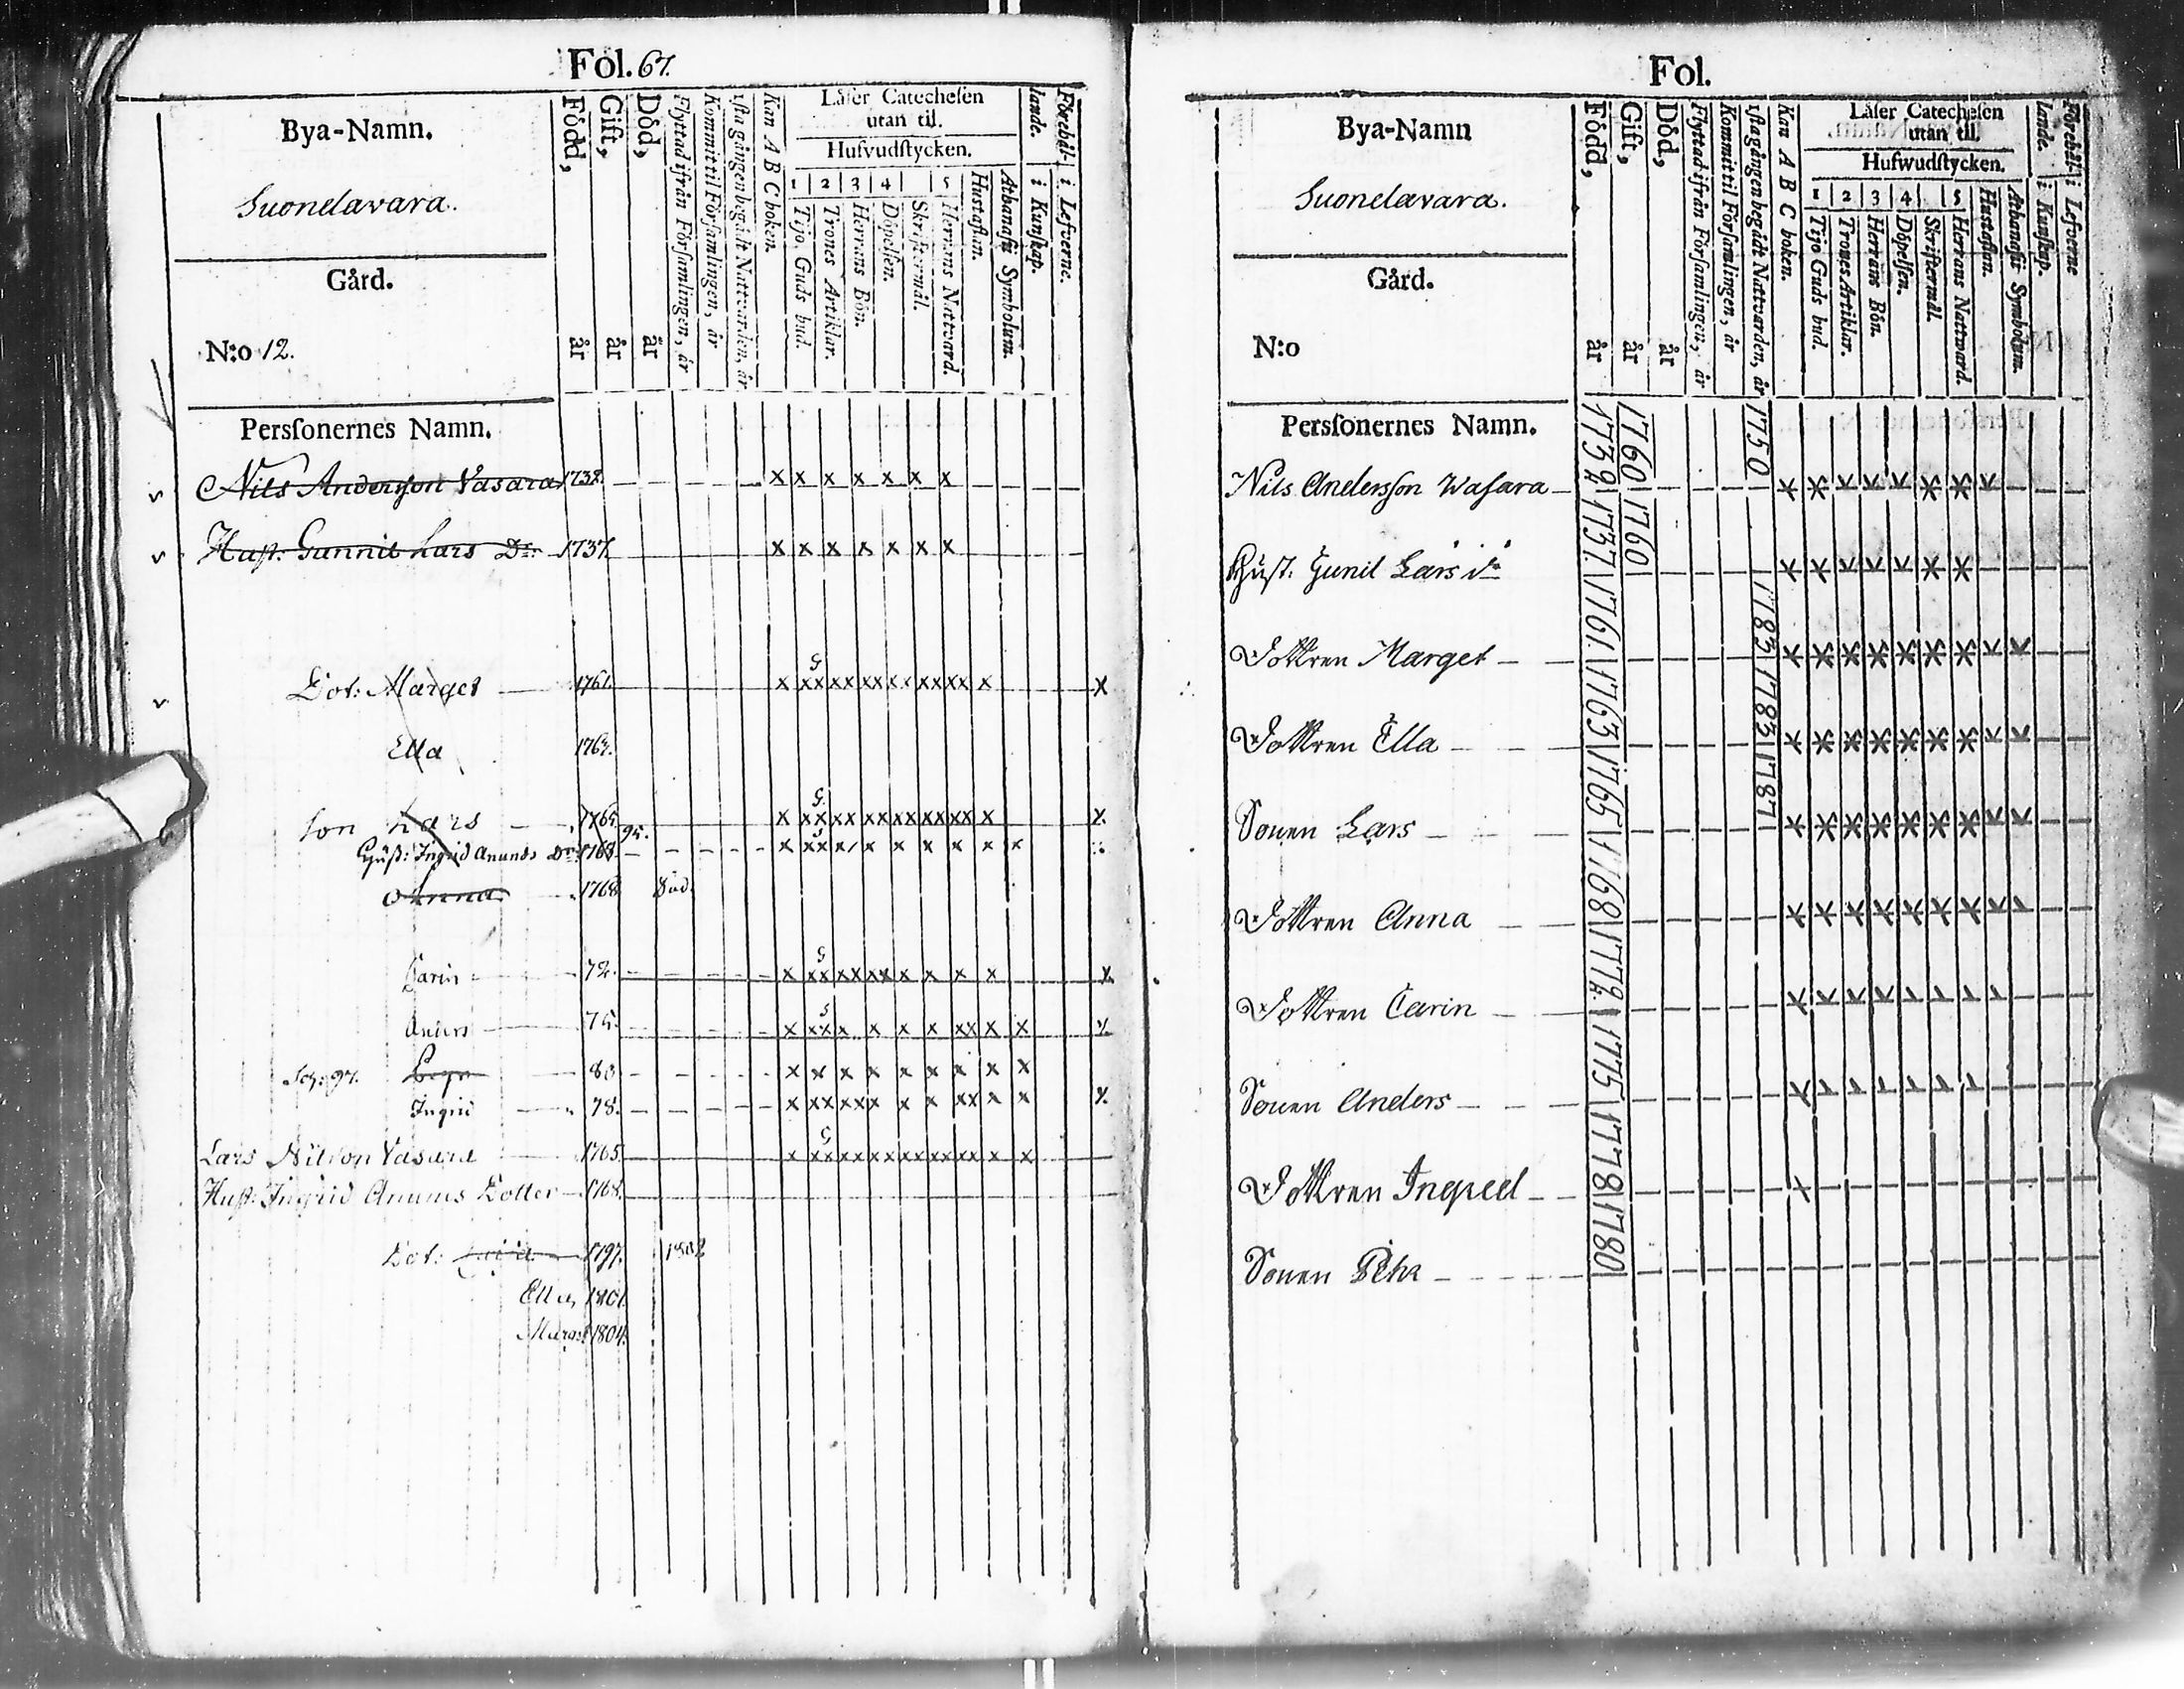 Fol. 67.
Bya-Namn.
Suonelavara.
Gård.
N:o 12.
Född, år
Gift, år
Död, år
Flyttad ifrån Församlingen, år
Kommit til Församlingen, år
1sta gången begådt Nattvarden, år
Kan A B C boken.
Läser Catechesen
utan til.
Hufvudstycken.
1 2 3 4 5
Tijo Guds bud.
Trones Artiklar.
Herrans Bön.
Döpelsen.
Skriftermål.
Herrans Nattvard.
Hustaflan.
Athanasii Symbolum.
lande. i Kunskap.
Förehål- i Lefverne.
Perssonernes Namn.
Nils Andersson Vasara 1732. x x x x x x x
Hust: Gunnil Lars Dr: 1737. x x x x x x x
G
Dot: Marget 1761. x xx xx xx xx xx xx x x
Ella 1763.
G.
Son Lars 1765. x xx xx xx xx xx xx x x
95.
Hust: Ingrid Anunds Dr: 1768 x xx x x x x x x x
Anna 1768 död.
G
Carin 72. x xx xx xx x x x x x
Anders 75. x xx x x x x xx x x x
80 x x x x x x x x x
Ingrid 78. x xx xx x x x xx x x x
G
Lars Nilsson Vasara 1765. x xx xx xx xx xx xx x x
Hust: Ingrid Anunds Dotter 1768.
Dot: 1797.
Ella, 1801.
Marg: 1804.
Fol.
Bya-Namn
Suonelavara.
Gård.
N:o
Född, år
Gift, år
Död, år
Flyttad ifrån Församlingen, år
Kommit til Församlingen, år
1sta gången begådt Nattvarden, år
Kan A B C boken.
Läser Catechesen
utan til.
Hufwudstycken.
1 2 3 4 5
Tijo Guds bud.
Trones Artiklar.
Herrans Bön.
Döpelsen.
Skriftermål.
Herrans Nattward.
Hustaflan.
Athanasii Symbolum.
lande. i Kunskap.
Förehål- i Lefverne
Perssonernes Namn.
Nils Andersson Wasara 1732 1760 1750
Hust. Gunil Lars dr 1737. 1760
Dottren Marget 1761. 1783
Dottren Ella 1763 1783
Sonen Lars 1765 1787
Dottren Anna 1768
Dottren Carin 1772.
Sonen Anders 1775
Dottren Ingrid 1778
Sonen Pehr 1780